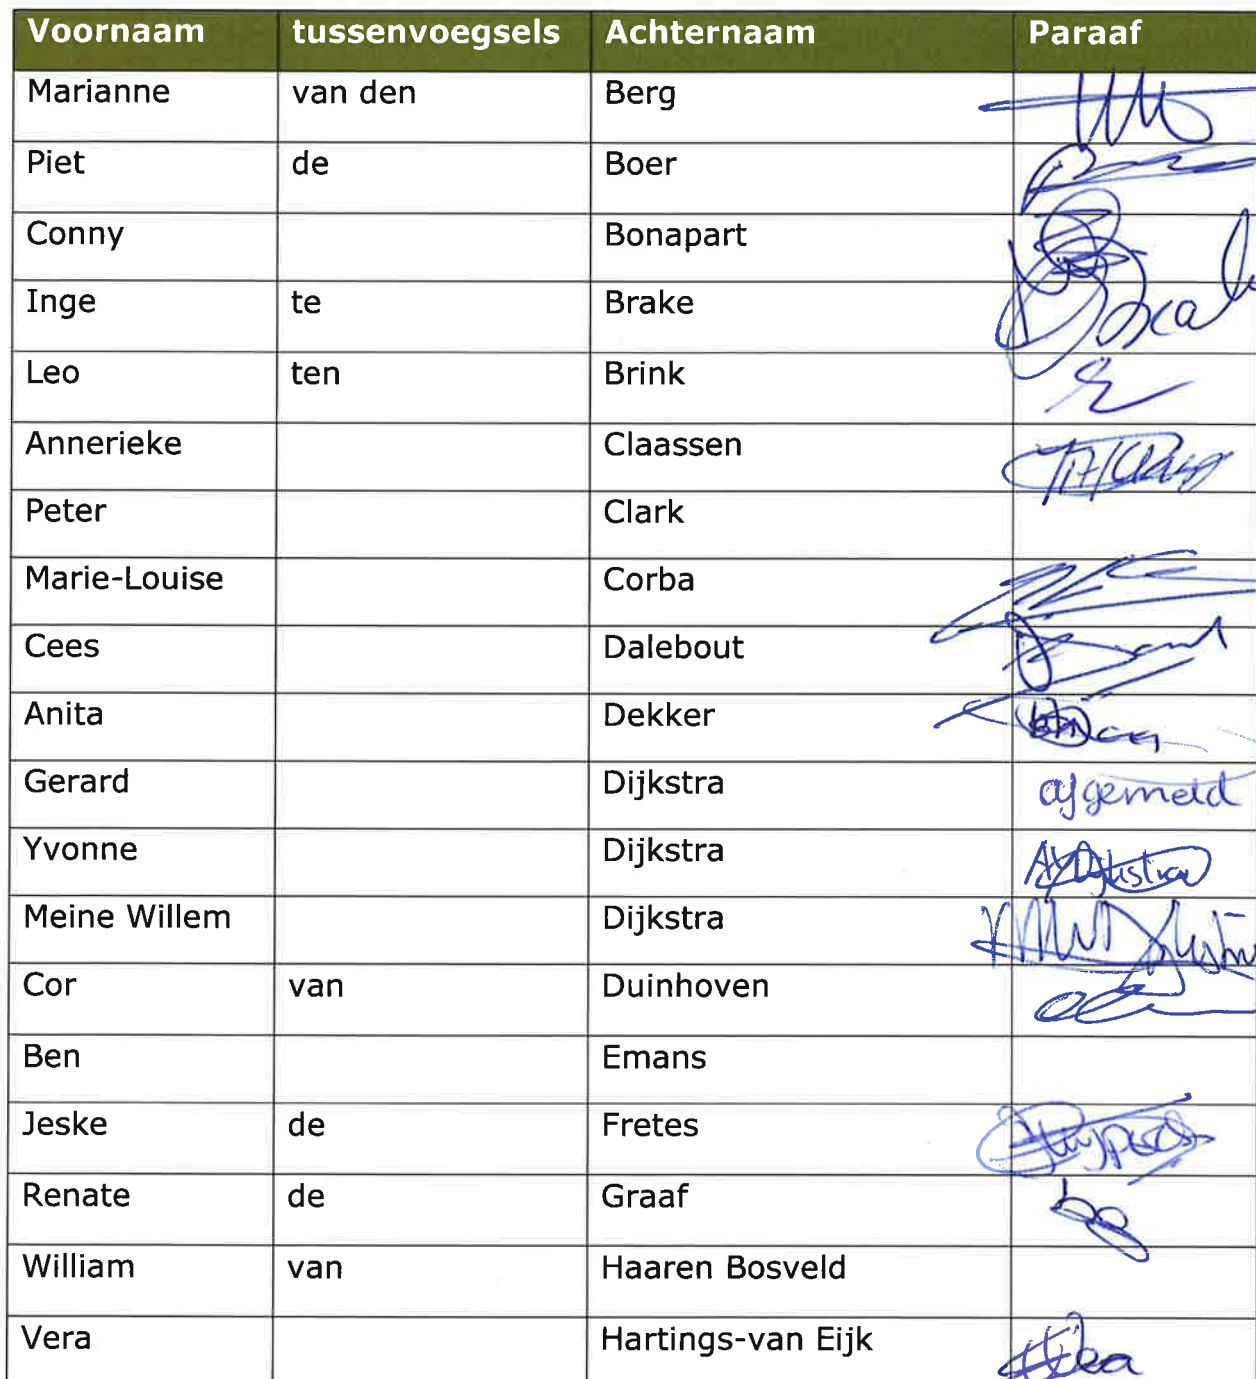 Voornaam tussenvoegsels Achternaam Paraaf
Marianne van den Berg
Piet de Boer
Conny Bonapart
Inge te Brake
Leo ten Brink
Annerieke Claassen
Peter Clark
Marie-Louise Corba
Cees Dalebout
Anita Dekker
Gerard Dijkstra afgemeld
Yvonne Dijkstra AYDijkstra
Meine Willem Dijkstra
Cor van Duinhoven
Ben Emans
Jeske de Fretes
Renate de Graaf
William van Haaren Bosveld
Vera Hartings-van Eijk